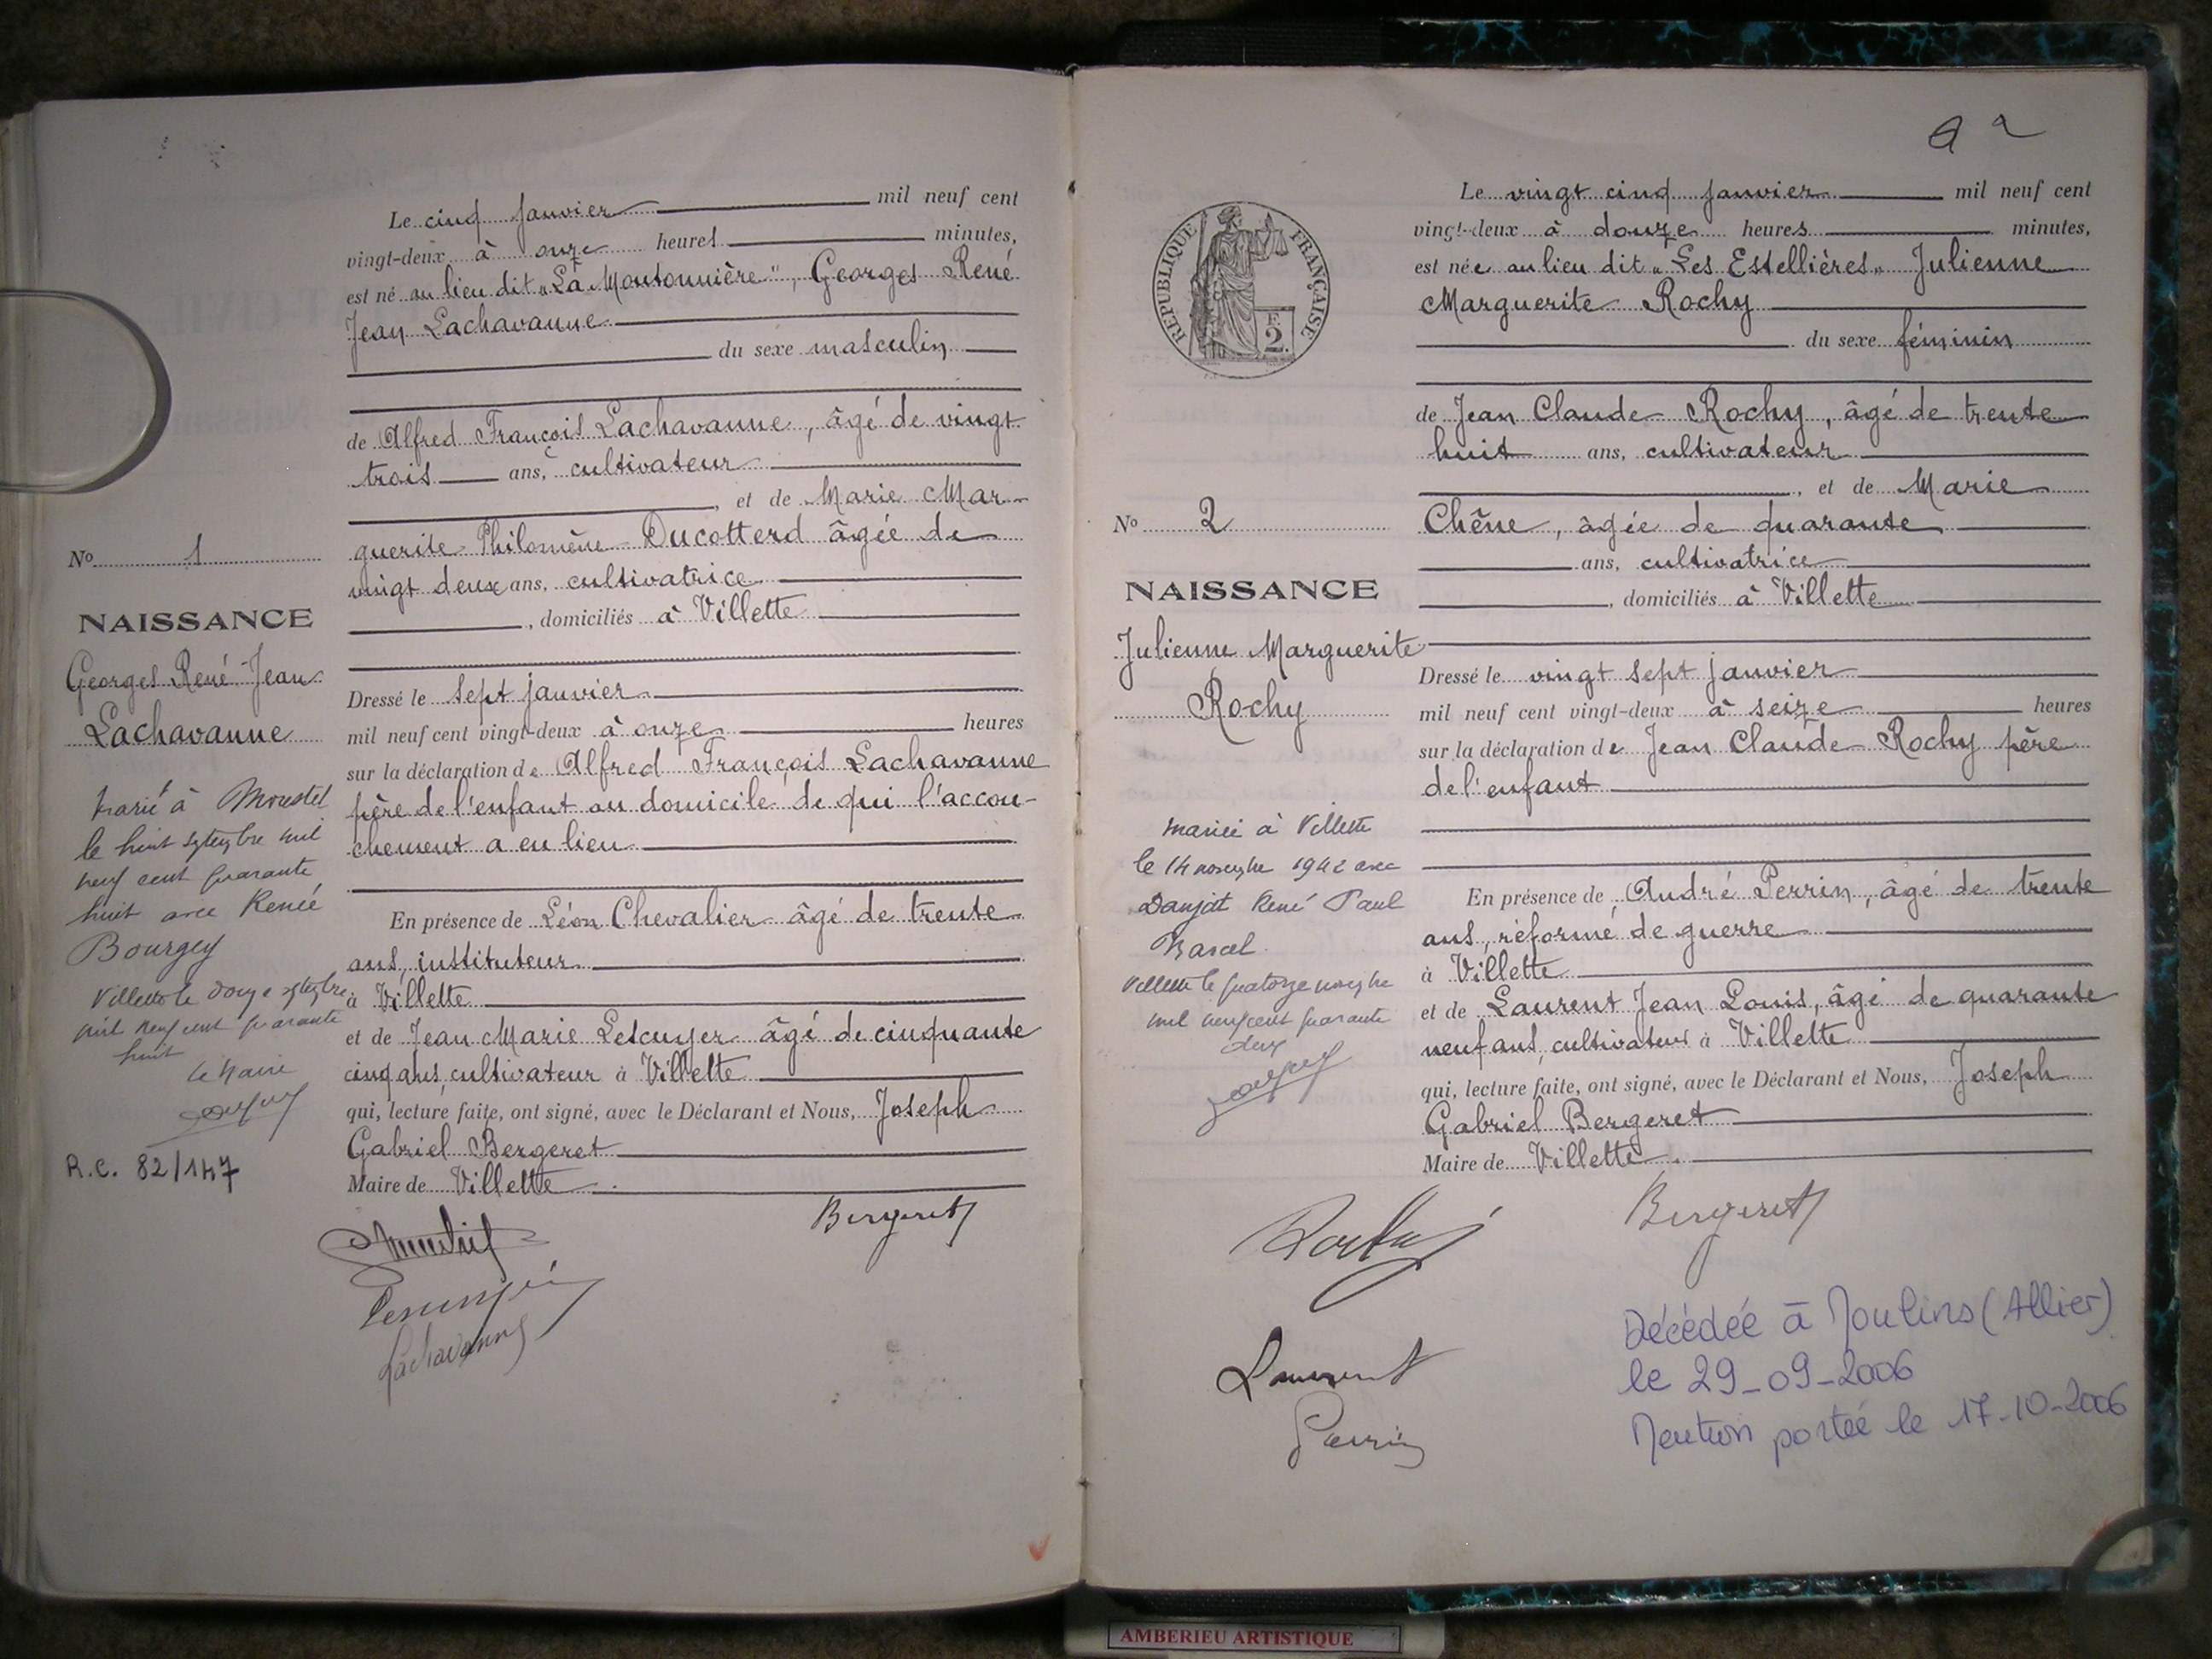 Le cinq janvier mil neuf cent
vingt-deux à onze heures minutes,
est né au lieu dit "La Moutonnière", Georges René
Jean Lachavanne
du sexe masculin
de Alfred François Lachavanne, âgé de vingt
trois ans, cultivateur
, et de Marie Mar-
guerite Philomène Ducotterd âgée de
vingt deux ans, cultivatrice
, domiciliés à Villette
Dressé le sept janvier
mil neuf cent vingt-deux à onze heures
sur la déclaration de Alfred François Lachavanne
père de l'enfant au domicile de qui l'accou-
chement a eu lieu
En présence de Léon Chevalier âgé de trente
ans, instituteur
à Villette
et de Jean Marie Lescuyer âgé de cinquante
cinq ans, cultivateur à Villette
qui, lecture faite, ont signé, avec le Déclarant et Nous, Joseph
Gabriel Bergeret
Maire de Villette
Bergeret
Lachavanne
No 1
NAISSANCE
Georges René Jean
Lachavanne
Marié à
le huit septembre mil
neuf cent quarante
huit avec Renée
Bourgey
Villette le douze septembre
mil neuf cent quarante
huit
Le Maire
R.C. 82/147
2
REPUBLIQUE FRANÇAISE
F.
2.
Le vingt cinq janvier mil neuf cent
vingt-deux à douze heures minutes,
est née au lieu dit "Les Estellières" Julienne
Marguerite Rochy
du sexe féminin
de Jean Claude Rochy, âgé de trente
huit ans, cultivateur
, et de Marie
Chêne, âgée de quarante
ans, cultivatrice
, domiciliés à Villette
Dressé le vingt sept janvier
mil neuf cent vingt-deux à seize heures
sur la déclaration de Jean Claude Rochy père
de l'enfant
En présence de André Perrin, âgé de trente
ans, réformé de guerre
à Villette
et de Laurent Jean Louis, âgé de quarante
neuf ans, cultivateur à Villette
qui, lecture faite, ont signé, avec le Déclarant et Nous, Joseph
Gabriel Bergeret
Maire de Villette.
No 2
NAISSANCE
Julienne Marguerite
Rochy
Mariée à Villette
le 14 novembre 1942 avec
Danjat René Paul
Marcel
Villette le quatorze novembre
mil neuf cent quarante
deux
Rochy
Bergeret
Laurent
Perrin
Décédée à Moulins (Allier)
le 29-09-2006
Mention portée le 17-10-2006
AMBERIEU ARTISTIQUE